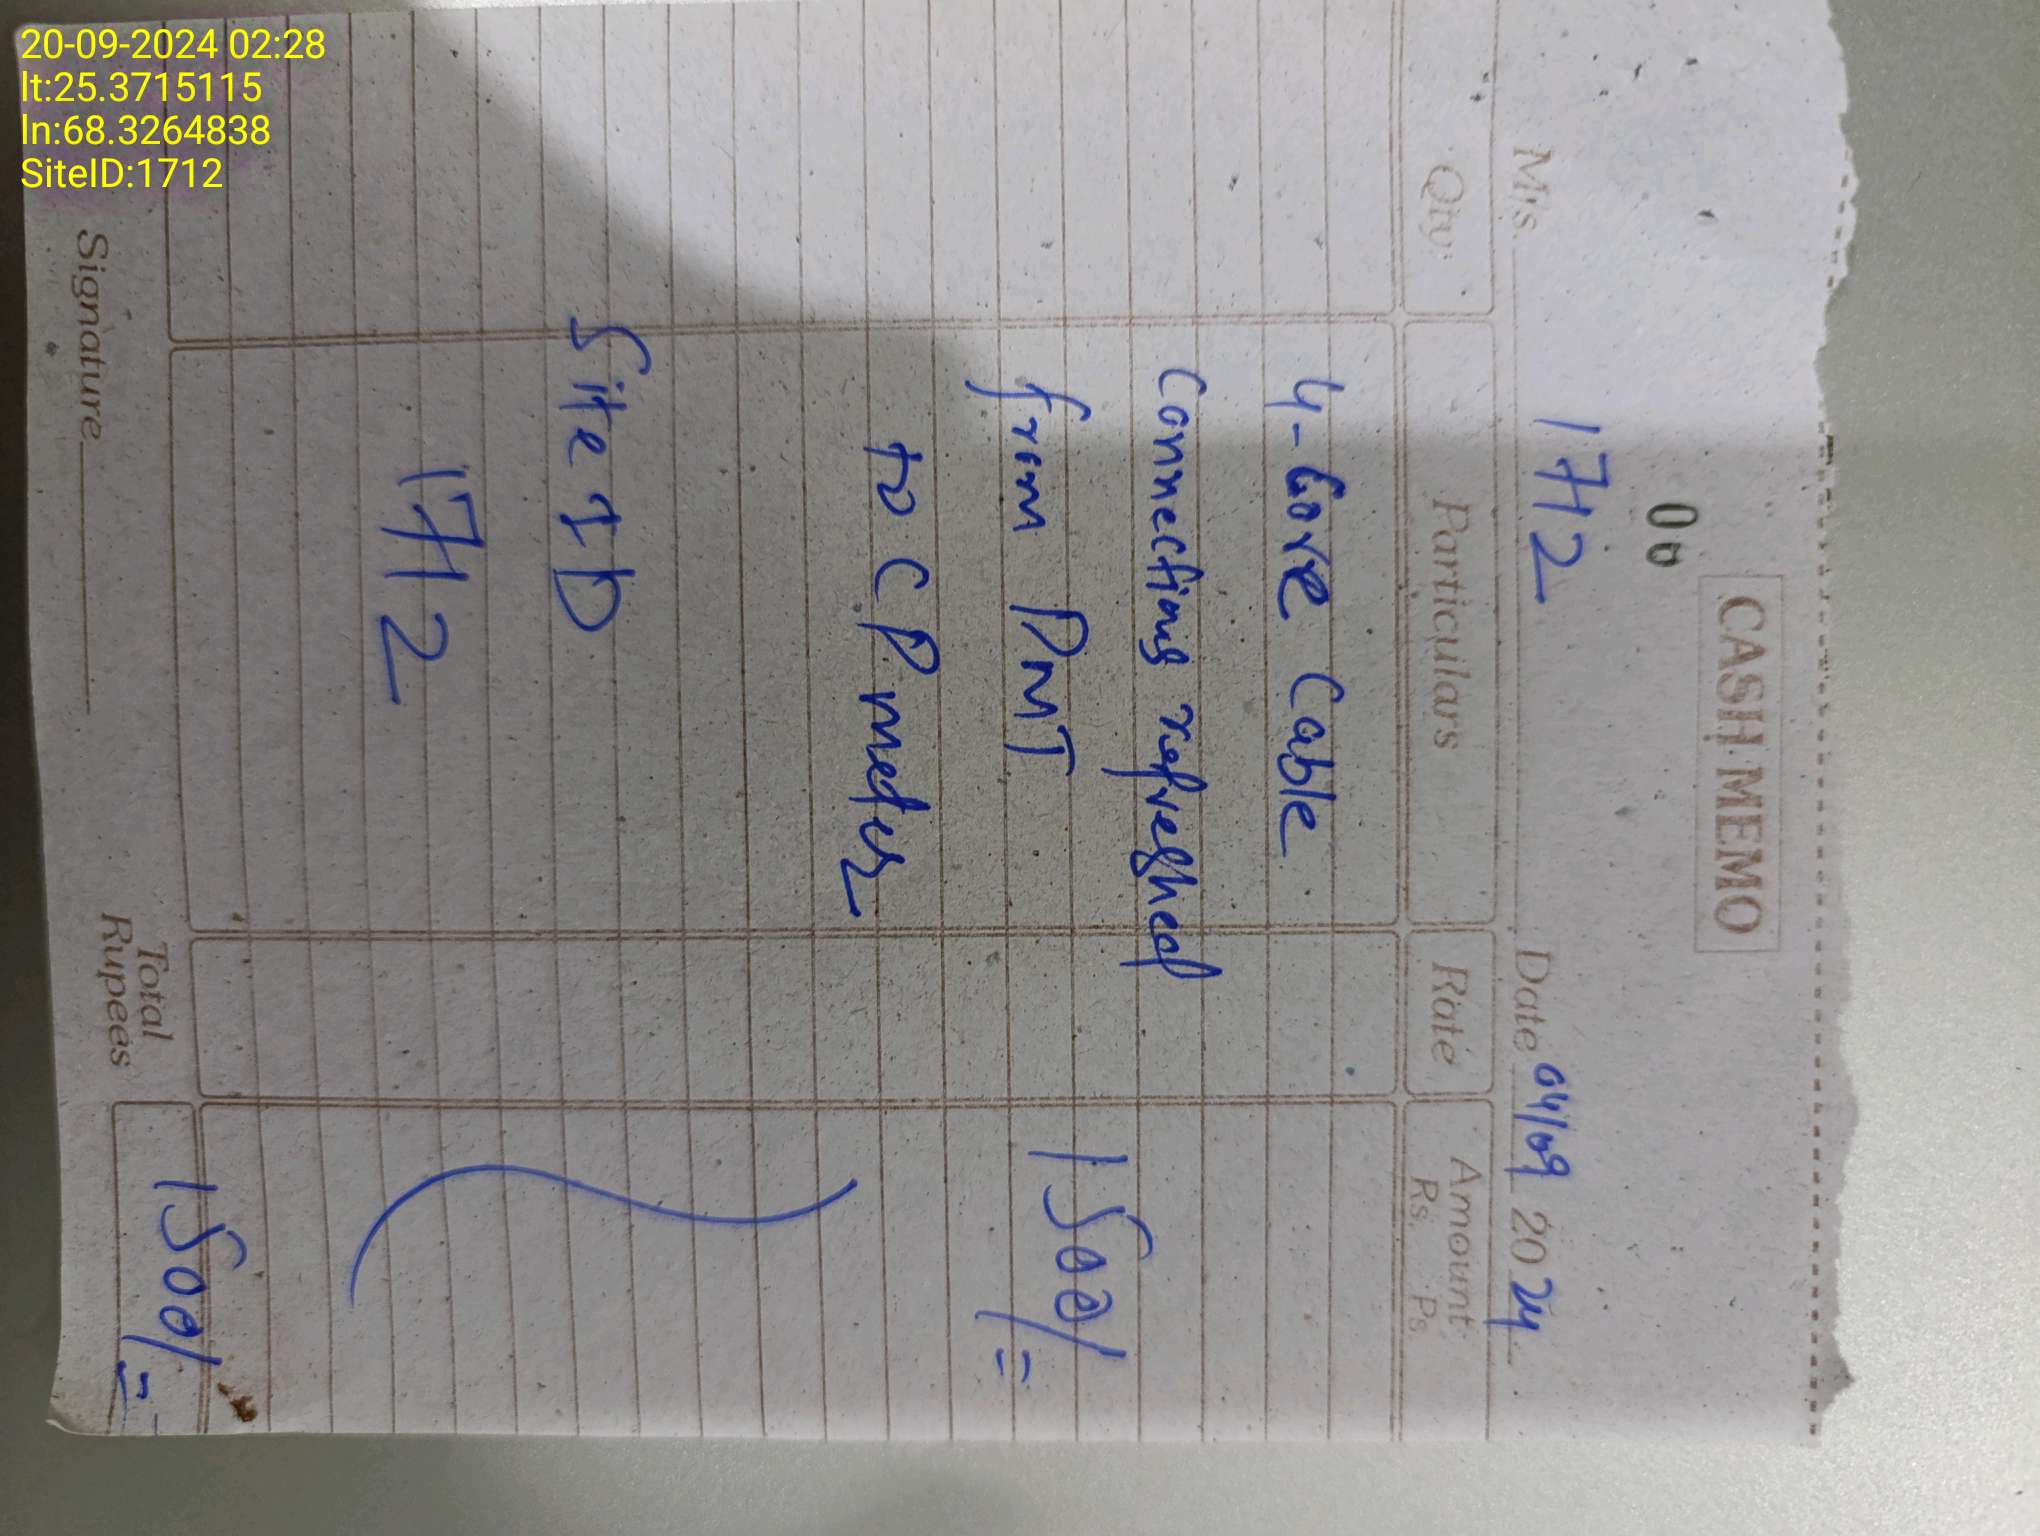 20-09-2024 02:28
lt:25.3715115
ln:68.3264838
SiteID:1712
CASH MEMO
00
M/s. 1712 Date 04/09 2024
Qty. Particulars Rate Amount
Rs. Ps.
4-Core Cable
Connections refreshed
from PMT 1500/=
to CP meter
Site ID
1712
Total
Rupees 1500/=
Signature